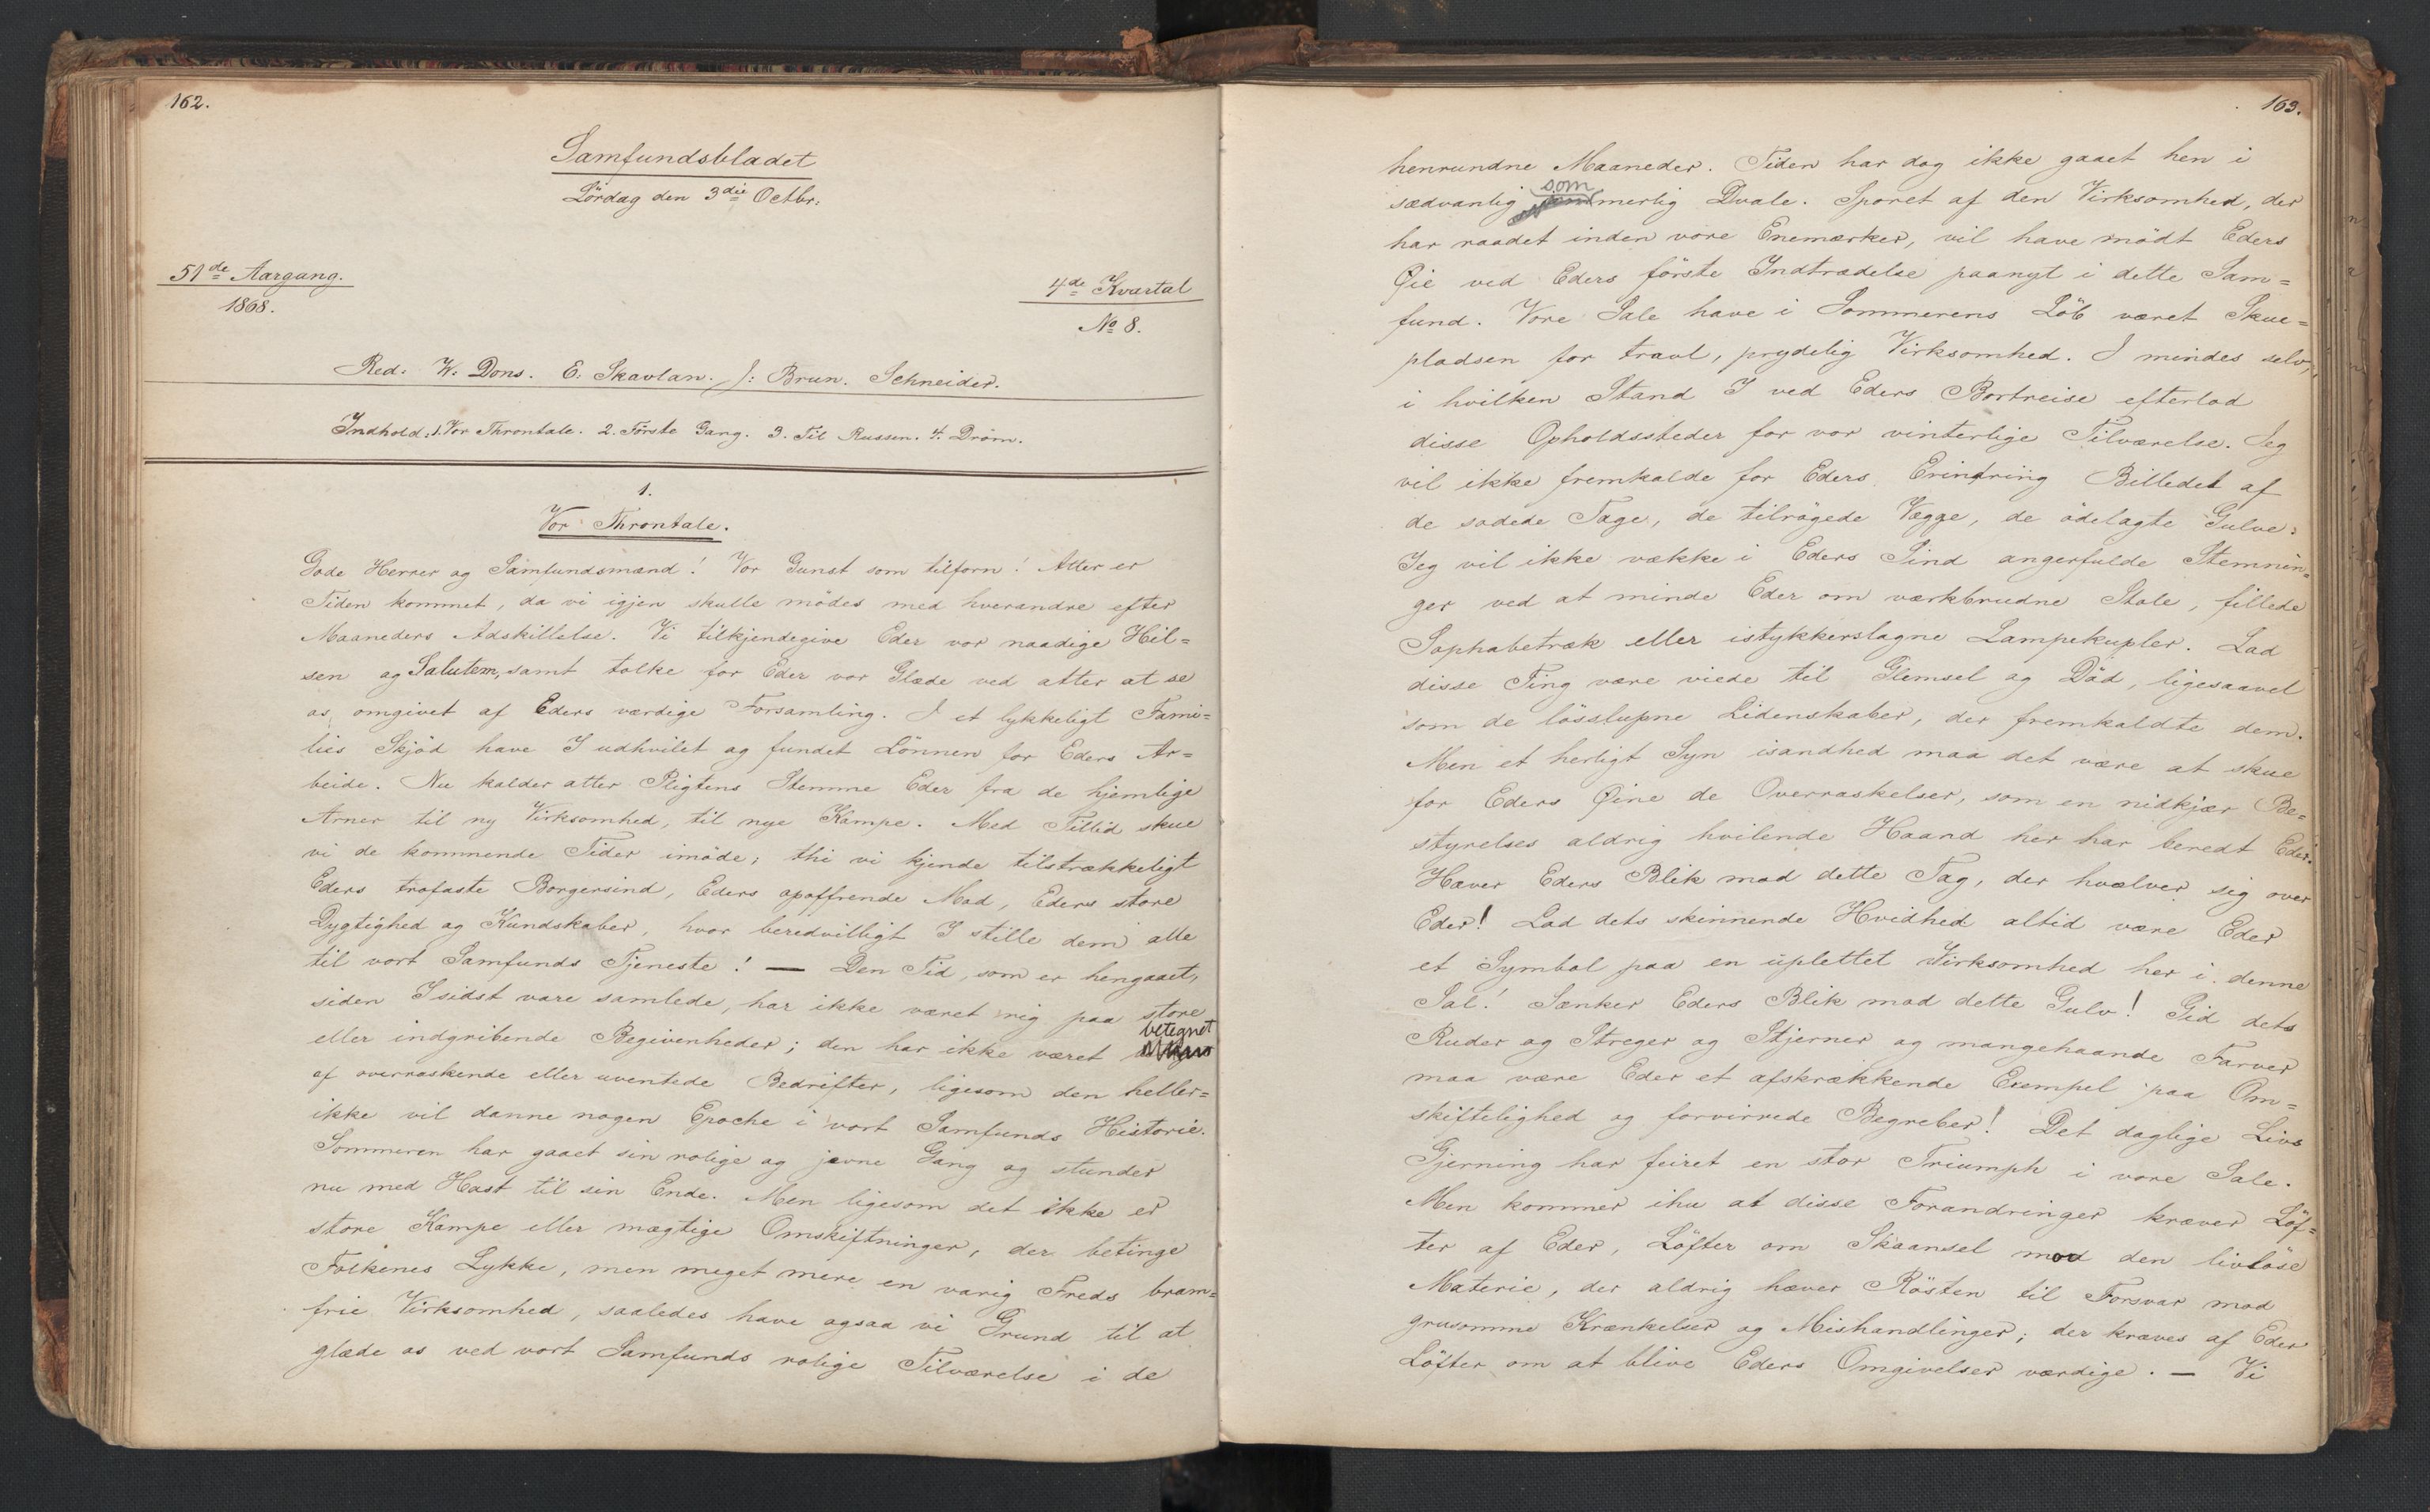 162.
Samfundsbladet
Lördag den 3die Octbr:
51de Aargang.
1868.
4de Kvartal
No 8.
Red: W: Dons. E: Skavlan. J: Brun. Schneider.
Indhold: 1. Vor Throntale. 2. Förste Gang. 3. Til Russen. 4. Dröm.
1.
Vor Throntale.
Gode Herrer og Samfundsmænd! Vor Gunst som tilforn! Atter er
Tiden kommet, da vi igjen skulle mödes med hverandre efter
Maaneders Adskillelse. Vi tilkjendegive Eder vor naadige Hil=
sen og Salutem, samt tolke for Eder vor Glæde ved atter at se
os omgivet af Eders værdige Forsamling. I et lykkeligt Fami=
lies Skjöd have I udhvilet og fundet Lönnen for Eders Ar=
beide. Nu kalder atter Pligtens Stemme Eder fra de hjemlige
Arner til ny Virksomhed, til nye Kampe. Med Tillid skue
vi de kommende Tider imöde; thi vi kjende tilstrækkeligt
Eders trofaste Borgersind, Eders opoffrende Mod, Eders store
Dygtighed og Kundskaber, hvor beredvilligt I stille dem alle
til vort Samfunds Tjeneste! — Den Tid, som er hengaaet,
siden I sidst vare samlede, har ikke været rig paa store
eller indgribende Begivenheder; den har ikke været betegnet
af overraskende eller uventede Bedrifter, ligesom den heller=
ikke vil danne nogen Epoche i vort Samfunds Historie.
Sommeren har gaaet sin rolige og jevne Gang og stunder
nu med Hast til sin Ende. Men ligesom det ikke er
store Kampe eller mægtige Omskiftninger, der betinge
Folkenes Lykke, men meget mere en varig Freds bram=
frie Virksomhed, saaledes have ogsaa vi Grund til at
glæde os ved vort Samfunds rolige Tilværelse i de
163.
henrundne Maaneder. Tiden har dog ikke gaaet hen i
sædvanlig sommerlig Dvale. Sporet af den Virksomhed, der
har raadet inden vore Enemærker, vil have mödt Eders
Øie ved Eders förste Indtrædelse paanyt i dette Sam=
fund. Vore Sale have i Sommerens Löb været Skue=
pladsen for travl, prydelig Virksomhed. I mindes selv,
i hvilken Stand I ved Eders Bortreise efterlod
disse Opholdssteder for vor vinterlige Tilværelse. Jeg
vil ikke fremkalde for Eders Erindring Billedet af
de sodede Tage, de tilrögede Vægge, de ödelagte Gulve;
Jeg vil ikke vække i Eders Sind angerfulde Stemnin=
ger ved at minde Eder om værkbrudne Stole, fillede
Sophabetræk eller istykkerslagne Lampekupler. Lad
disse Ting være viede til Glemsel og Död, ligesaavel
som de lösslupne Lidenskaber, der fremkaldte dem.
Men et herligt Syn isandhed maa det være at skue
for Eders Øine de Overraskelser, som en nidkjær Be=
styrelses aldrig hvilende Haand her har beredt Eder.
Hæver Eders Blik mod dette Tag, der hvælver sig over
Eder! Lad dets skinnende Hvidhed altid være Eder
et Symbol paa en uplettet Virksomhed her i denne
Sal! Sænker Eders Blik mod dette Gulv! Gid dets
Ruder og Streger og Stjerner og mangehaande Farver
maa være Eder et afskrækkende Exempel paa Om=
skiftelighed og forvirrede Begreber! Det daglige Livs
Gjerning har feiret en stor Triumph i vore Sale.
Men kommer ihu at disse Forandringer kræver Löf=
ter af Eder, Löfter om Skaansel mod den livlöse
Materie, der aldrig hæver Rösten til Forsvar mod
grusomme Krænkelser og Mishandlinger; der kræves af Eder
Löfter om at blive Eders Omgivelser værdige. — Vi